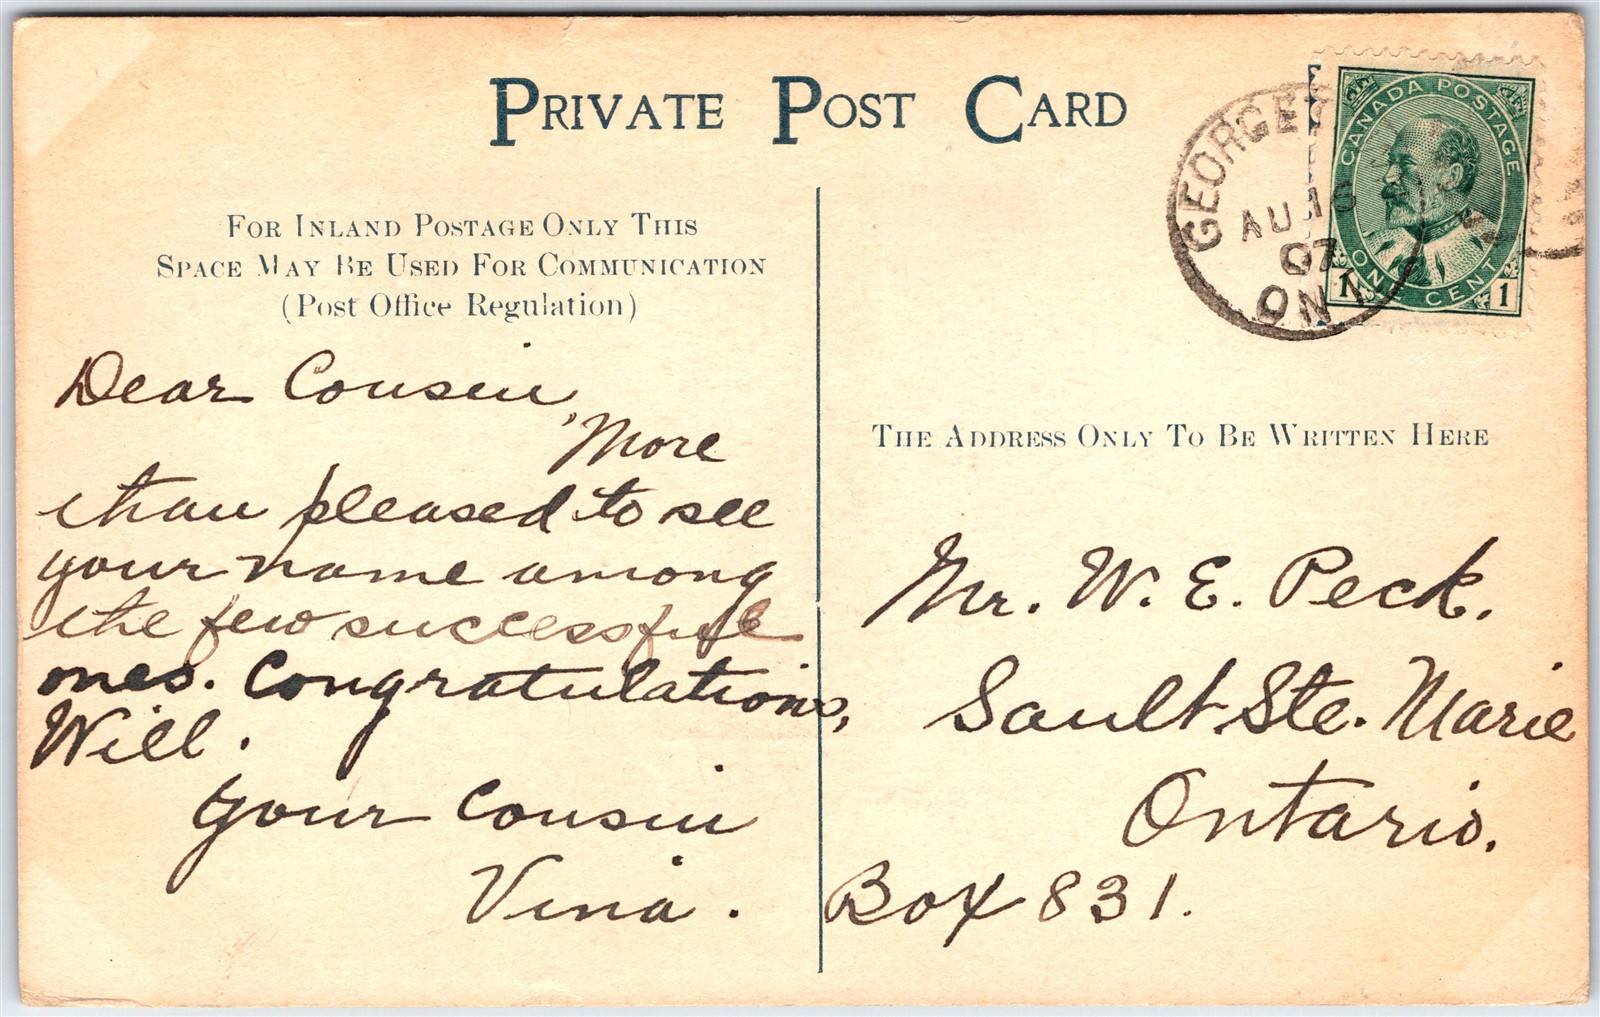 PRIVATE POST CARD
FOR INLAND POSTAGE ONLY THIS
SPACE MAY BE USED FOR COMMUNICATION
(Post Office Regulation)
Dear Cousin,
More
than pleased to see
your name among
the few successful
ones. Congratulations,
Will.
Your Cousin
Vina.
CANADA POSTAGE
ONE CENT
1 1
GEORGET
AU 16
07
ONT
THE ADDRESS ONLY TO BE WRITTEN HERE
Mr. W. E. Peck.
Sault Ste. Marie
Ontario.
Box 831.